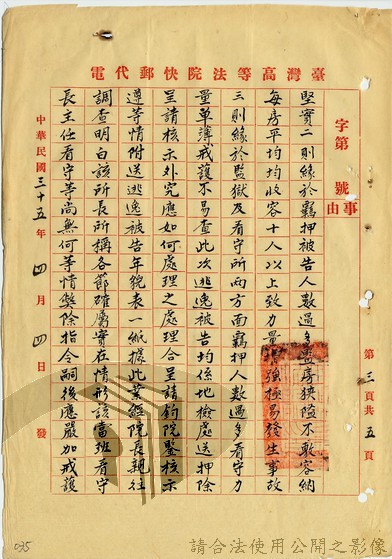 臺灣高等法院快郵代電
字第　　號
事由
堅實二則緣於羈押被告人數過多監房狹隘不敷容納
每房平均均收容十人以上致力量增強極易發生事故
三則緣於監獄及看守所兩方面羈押人數過多看守力
量單薄戒護不易查此次逃逸被告均係地檢處送押除
呈請核示外究應如何處理之處理合呈請鈞院鑒核示
遵等情附送逃逸被告年貌表一紙據此業經院長親往
調查明白該所長所稱各節確屬實在情形該當班看守
長主任看守等尚無何等情弊除指令嗣後應嚴加戒護
中華民國三十五年四月四日發
第三頁共五頁
035
請合法使用公開之影像